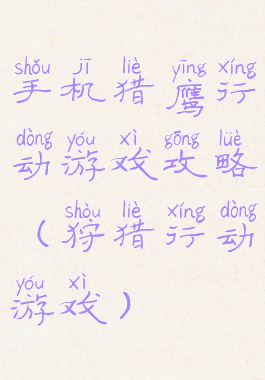 shǒu jī liè yīng xíng
手机猎鹰行
dòng yóu xì gōng lüè
动游戏攻略
shòu liè xíng dòng
（狩猎行动
yóu xì
游戏）